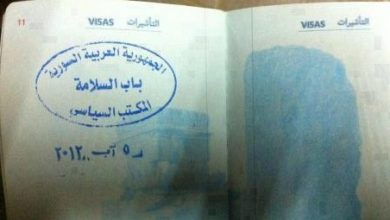 11
VISAS
التأشيرات
VISAS
التأشيرات
الجمهورية العربية السورية
باب السلامة
المكتب السياسي
٥ آب ٢٠١٢